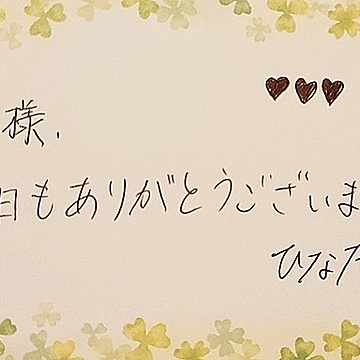 様.
日もありがとうございま
ひなた